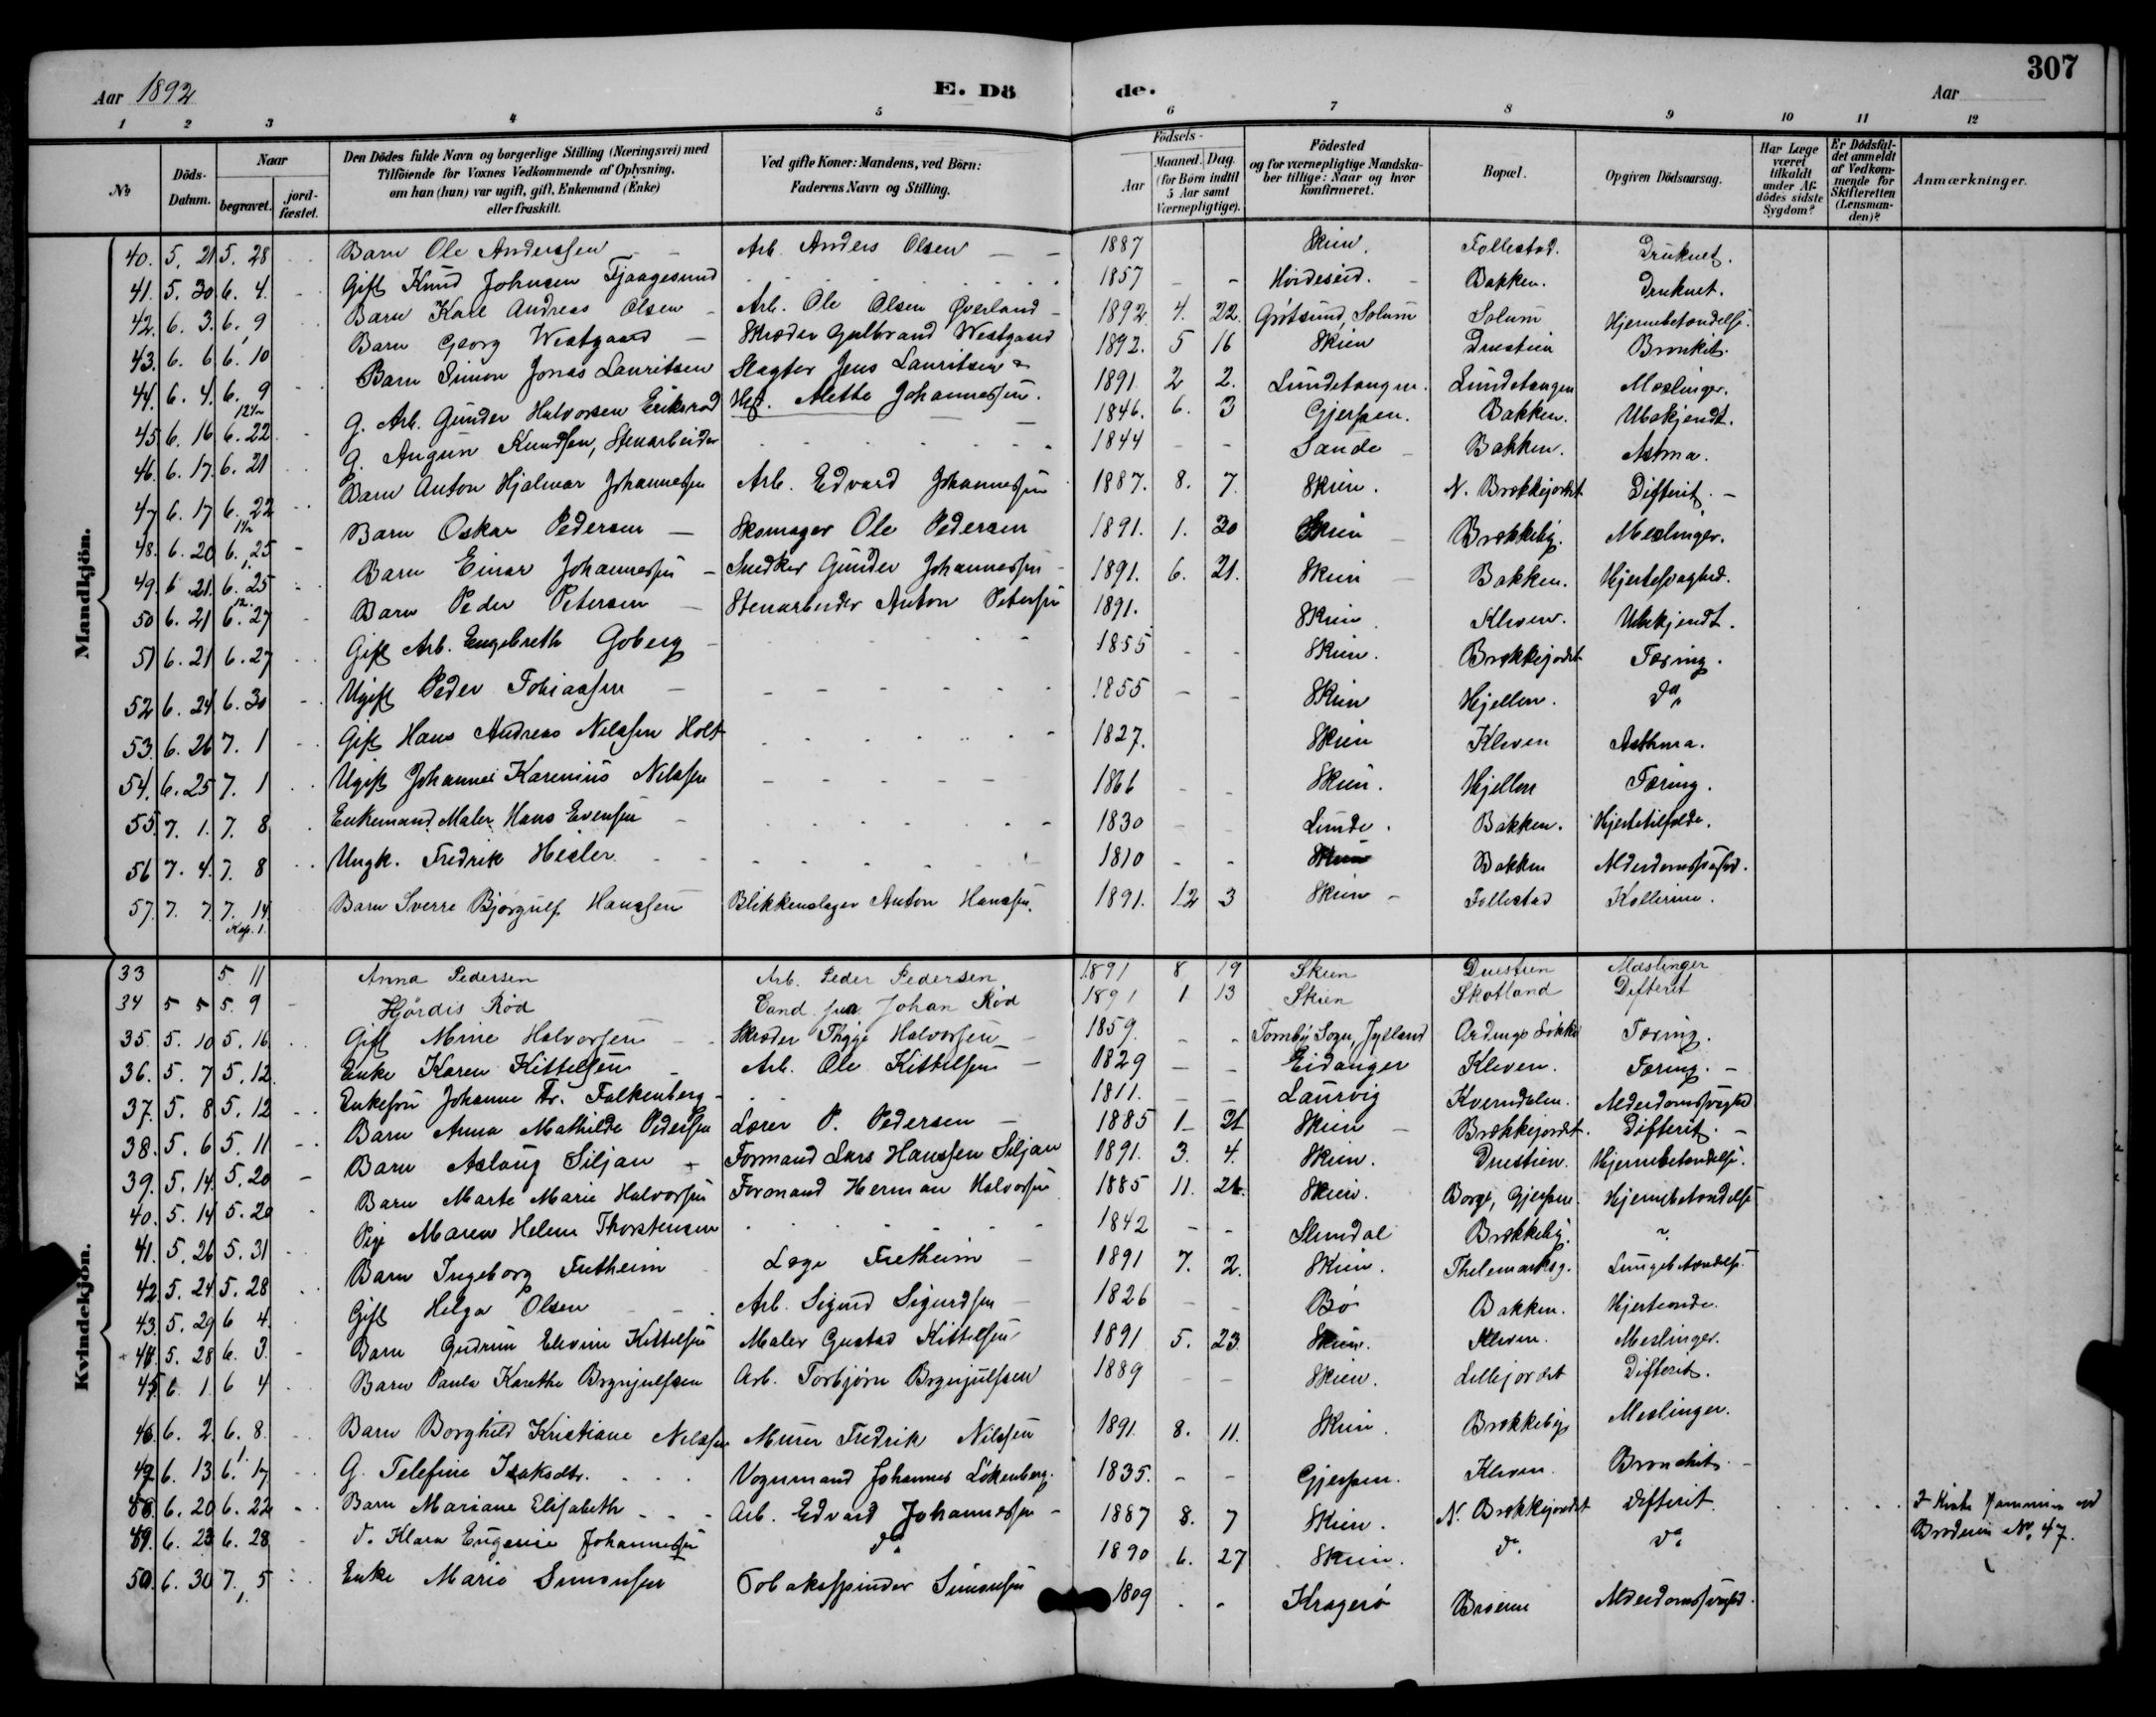 307
Aar 1892
E. Dö de.
Aar
1 2 3 4 5 6 7 8 9 10 11 12
No
Döds-Datum.
Naar begravet. jordfæstet.
Den Dödes fulde Navn og borgerlige Stilling (Næringsvei) med Tilföiende for Voxnes Vedkommende af Oplysning, om han (hun) var ugift, gift, Enkemand (Enke) eller fraskilt.
Ved gifte Koner: Mandens, ved Börn: Faderens Navn og Stilling.
Födsels- Aar Maaned. Dag. (for Börn indtil 5 Aar samt Værnepligtige).
Födested og for værnepligtige Mandskaber tillige: Naar og hvor konfirmeret.
Bopæl.
Opgiven Dödsaarsag.
Har Læge været tilkaldt under Afdödes sidste Sygdom?
Er Dödsfaldet anmeldt af Vedkommende for Skifteretten (Lensmanden)?
Anmærkninger.
Mandkjön.
40. 5. 21 5. 28 Barn Ole Anderssen Arb. Anders Olsen 1887 Skien. Follestad. Druknet.
41. 5. 30 6. 4. Gift Knud Johnsen Tjaagesund 1857 Hvideseid. Bakken. Druknet.
42. 6. 3. 6. 9 Barn Karl Andreas Olsen Arb. Ole Olsen Øverland 1892 4. 22. Grötsund, Solum Solum Hjernebetændelse.
43. 6. 6 6. 10 Barn Georg Westgaard Skræder Gulbrand Westgaard 1892. 5 16 Skien Duestien Bronkit.
44. 6. 4. 6. 9 Barn Simon Jonas Lauritsen Slagter Jens Lauritsen 1891 2 2. Lundetangen. Lundetangen Mæslinger.
45 6. 16 6. 22 G. Arb. Gunder Halvorsen Eriksrød Alette Johannessen. 1846. 6. 3 Gjerpen. Bakken. Ubekjendt.
46. 6. 17. 6. 21 G. Augun Knudsen, Stenarbeider 1844 Sande Bakken. Astma.
47 6. 17 6. 22 Barn Anton Hjalmar Johannessen Arb. Edvard Johannessen 1887. 8. 7. Skien. N. Brekkejordet Difterit.
48. 6. 20 6. 25 Barn Oskar Pedersen Skomager Ole Pedersen 1891. 1. 30 Skien Brekkeby. Meslinger.
49. 6. 21. 6. 25 Barn Einar Johannessen Snedker Gunder Johannessen 1891. 6. 21. Skien Bakken. Hjertesvaghed.
50 6. 21 6. 27 Barn Peder Petersen Stenarbeider Anton Petersen 1891. Skien Kleven. Ubekjendt.
51 6. 21 6. 27 Gift Arb. Engebreth Goberg 1855 Skien. Brekkejordet Tæring.
52 6. 24 6. 30 Ugift Peder Tobiassen 1855 Skien Hjellen. do
53. 6. 26 7. 1 Gift Hans Andreas Nilssen Holt 1827. Skien Kleven Asthma.
54. 6. 25 7. 1 Ugift Johannes Karenius Nilssen 1866 Skien. Hjellen Tæring.
55. 7. 1. 7. 8 Enkemand Maler Hans Evensen 1830 Lunde. Bakken. Hjertetilfælde.
56 7. 4. 7. 8 Ungk. Fredrik Hesler 1810 Skien Bakken Alderdomssvaghed.
57. 7. 7. 7. 14. Barn Sverre Bjørgulf Hanssen Blikkenslager Anton Hanssen. 1891. 12 3 Skien Follestad Kollerine.
Kap. 1.
Kvindekjön.
33 5. 11 Anna Pedersen Arb. Peder Pedersen 1891 8 19 Skien Duestien Mæslinger
34 5 5 5. 9 Hjördis Röd Cand. Johan Röd 1891 1 13 Skien Skotland Difterit
35. 5. 10 5. 16 Gift Mine Halvorsen Skræder Thyge Halvorsen 1859. Tornby Sogn, Jylland Ordings Løkke Tæring.
36. 5. 7 5. 12. Enke Karen Kittelsen Arb. Ole Kittelsen 1829 Eidanger Kleven. Tæring.
37. 5. 8 5. 12 Enkefru Johanne Fr. Falkenberg 1811. Laurvig Kverndalen. Alderdomssvaghed
38. 5. 6 5. 11 Barn Anna Mathilde Pedersen Lærer P. Pedersen 1885 1 21 Skien Brekkejordet. Difterit.
39. 5. 14. 5. 20 Barn Aslaug Siljan Formand Lars Hanssen Siljan 1891. 3. 4. Skien. Duestien. Hjernebetændelse.
40. 5. 14 5. 20 Barn Marte Marie Halvorsen Formand Herman Halvorsen 1885 11. 21. Skien. Borge, Gjerpen Hjernebetændelse
41. 5. 26 5. 31 Pige Maren Helene Thorstensen 1842 Slemdal Brekkeby. ?
42. 5. 24. 5. 28 Barn Ingeborg Fretheim Læge Fretheim 1891 7. 2. Skien. Thelemarksg. Lungebetændelse.
43. 5. 29 6 4. Gift Helga Olsen Arb. Sigurd Sigurdsen 1826 Bö Bakken. Hjerteonde.
44. 5. 28 6. 3. Barn Gudrun Elevine Kittelsen Maler Gustad Kittelsen 1891 5. 23 Skien. Kleven. Meslinger.
45 6. 1. 6 4 Barn Paula Karethe Brynjulfsen Arb. Torbjörn Brynjulfsen 1889 Skien. Lillejordet Difterit.
46. 6. 2. 6. 8. Barn Borghild Kristiane Nelssen Murer Fredrik Nilssen 1891. 8. 11. Skien. Brekkeby Meslinger.
47 6. 13 6. 17 G. Telefine Isaksdtr. Vognmand Johannes Løkenberg. 1835. Gjerpen. Kleven. Bronchit.
48. 6. 20 6. 22 Barn Mariane Elisabeth Arb. Edvard Johannessen 1887 8. 7 Skien. N. Brekkejordet difterit. I Kiste sammen med
49. 6. 23 6. 28 d. Klara Eugenie Johannessen do 1890 6. 27 Skien. do do Broderen No. 47.
50. 6. 30 7. 5 Enke Marie Simonsen Tobakspinder Simonsen 1809 Kragerö Broene Alderdomssvaghed.